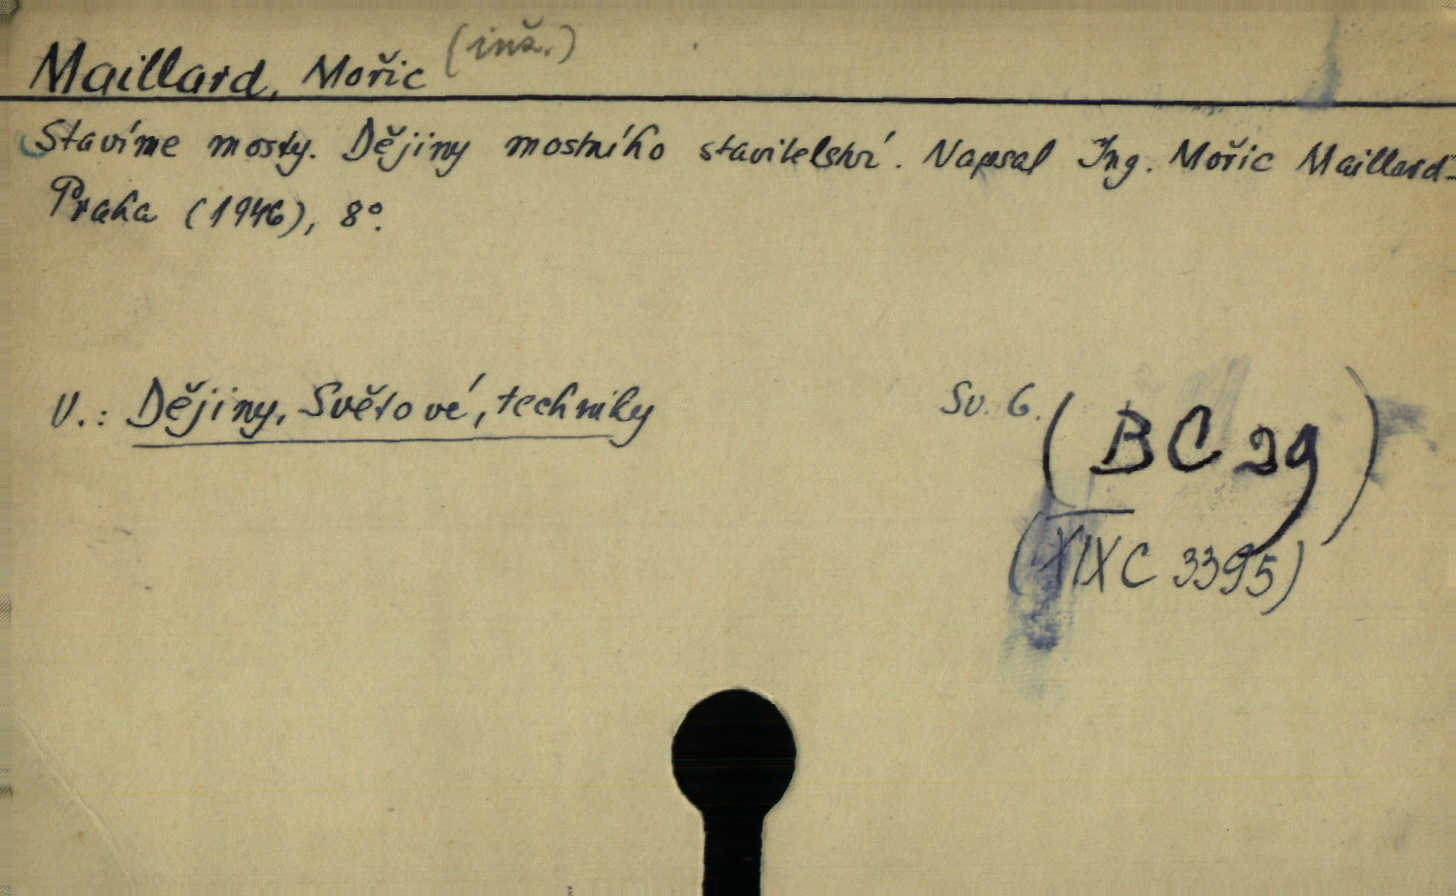 Maillard, Mořic (inž.)
Stavíme mosty. Dějiny mostního stavitelství. Napsal Ing. Mořic Maillard-
Praha (1946), 8°.
V.: Dějiny, Světové, techniky Sv. 6.
(BC 29)
(XIX C 3395)